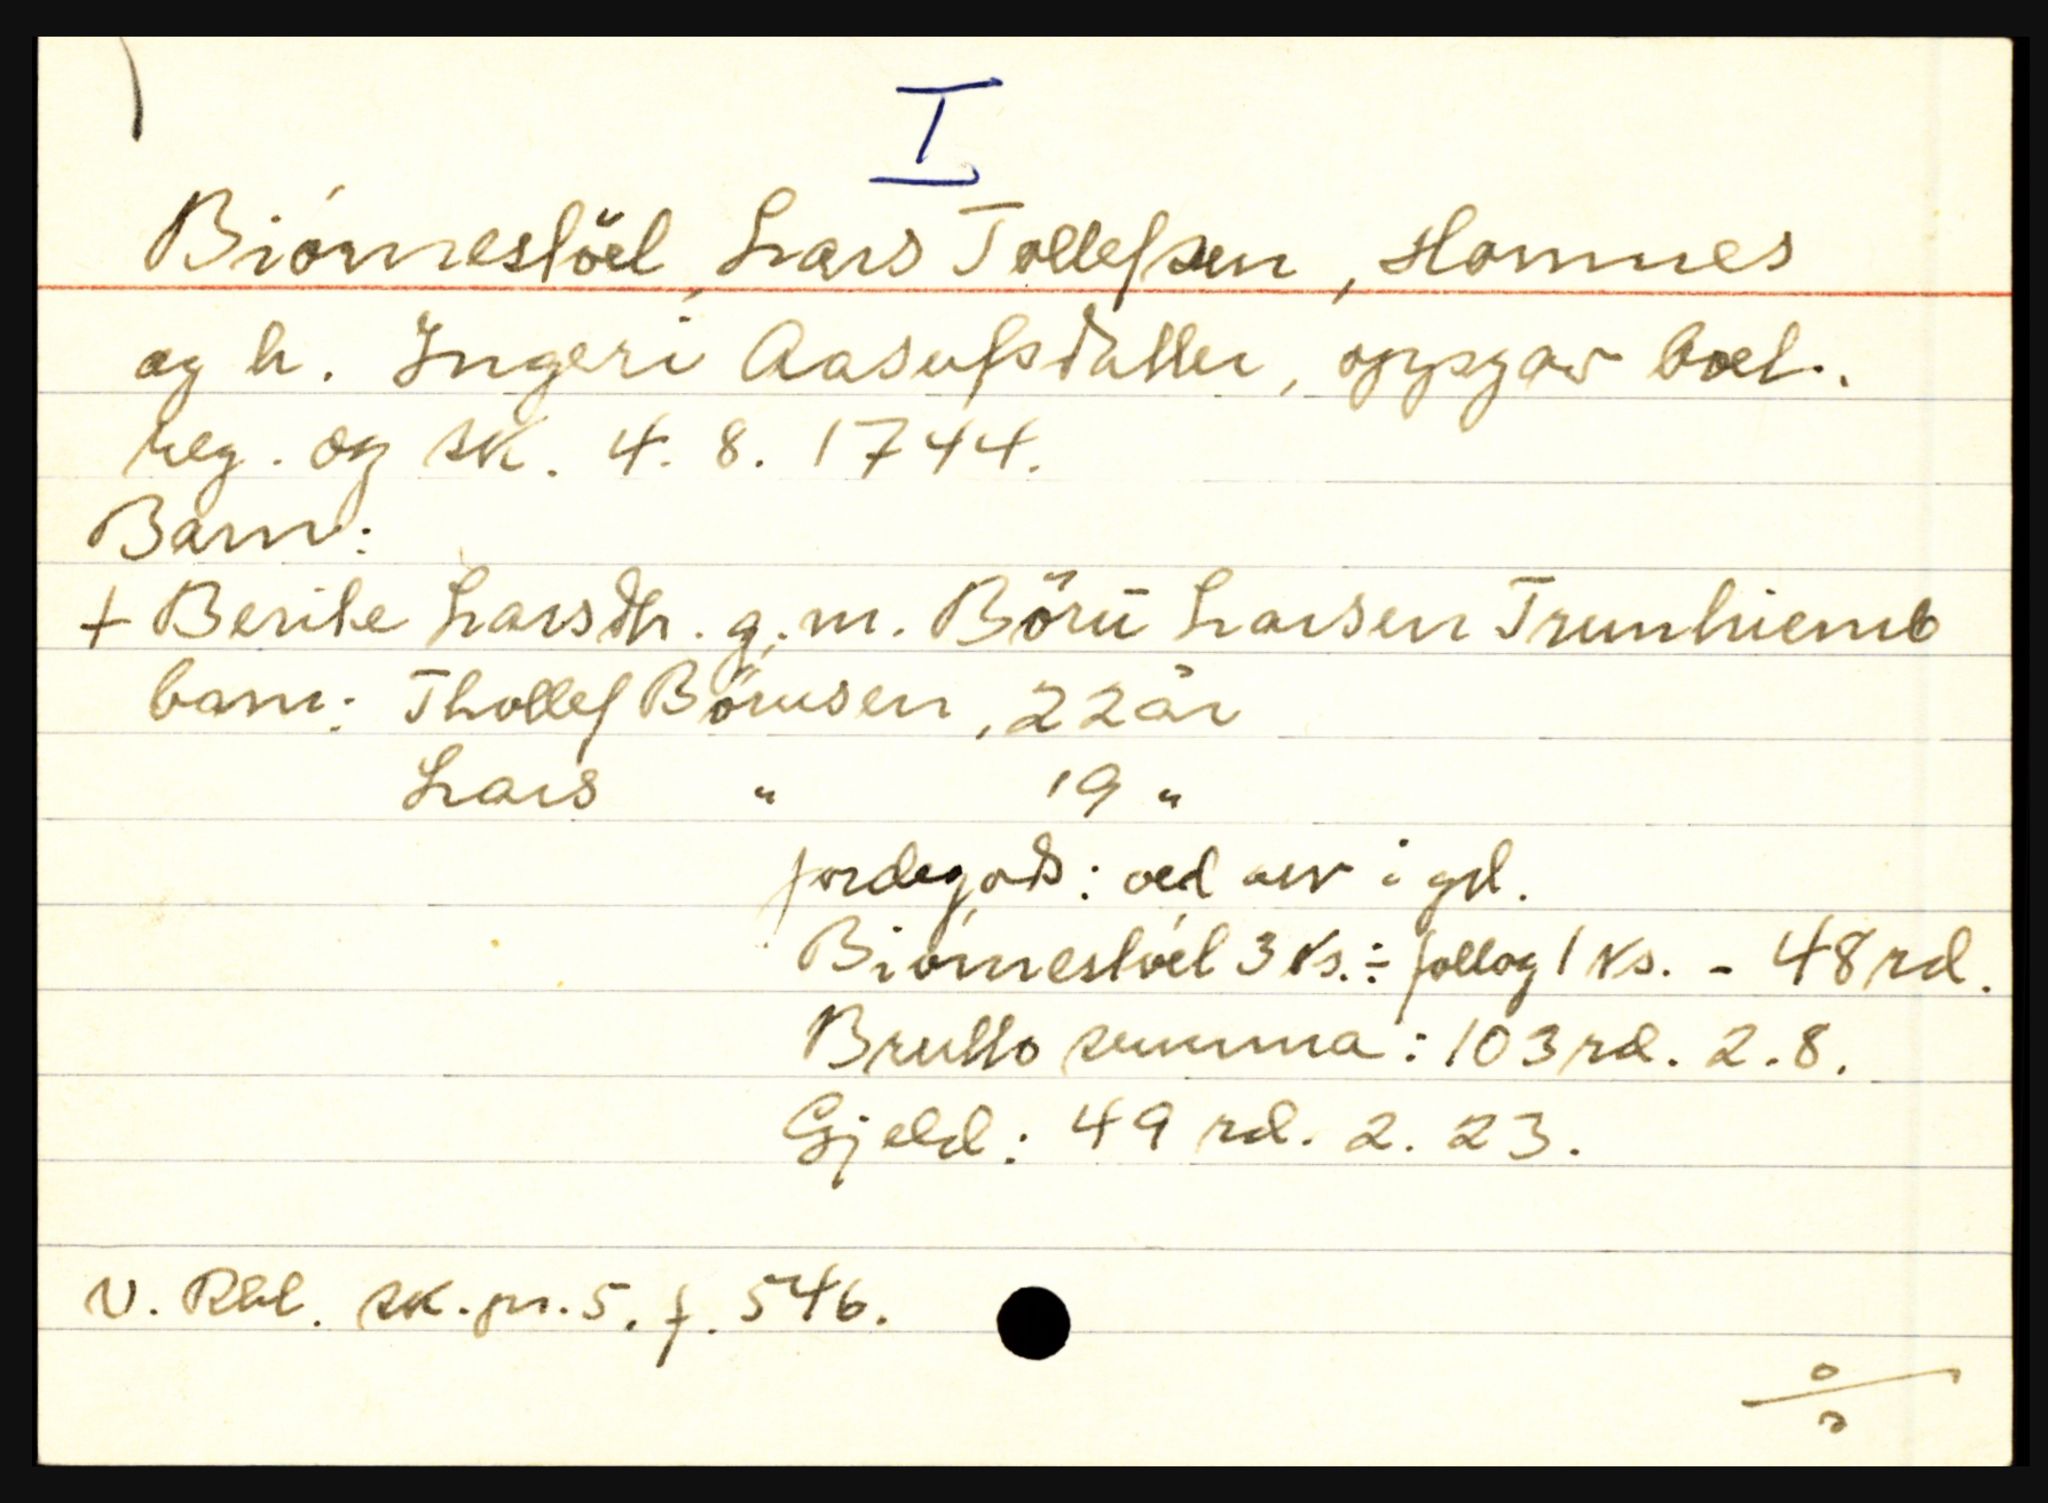 I
Biørnestöel, Lars Tollefsen, Homnes
og h. Ingeri Aasufsdatter, oppgav boet.
reg. og sk. 4. 8. 1744.
Barn:
+ Berite Larsdtr. g. m. Börü Larsen Trunhiemb
barn: Thollef Börusen, 22 år
Lars " 19 "
jordegods: ved arv i gd.
Biørnestöel 3 ks. ÷ follog 1 ks. - 48 rd.
Brutto summa: 103 rd. 2. 8.
Gjeld: 49 rd. 2. 23.
N. Rbl. sk. pr. 5. f. 546.